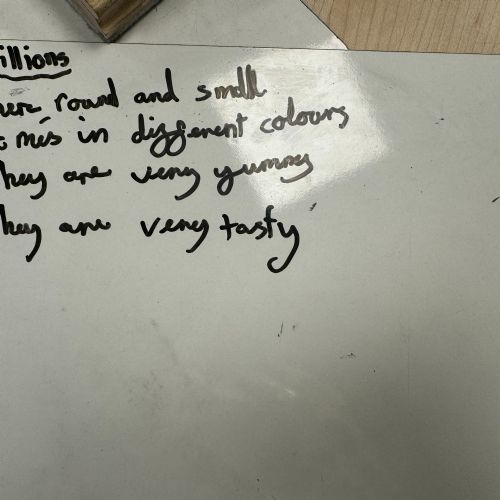 illions
here round and small
comes in different colours
they are very yummy
hey are very tasty